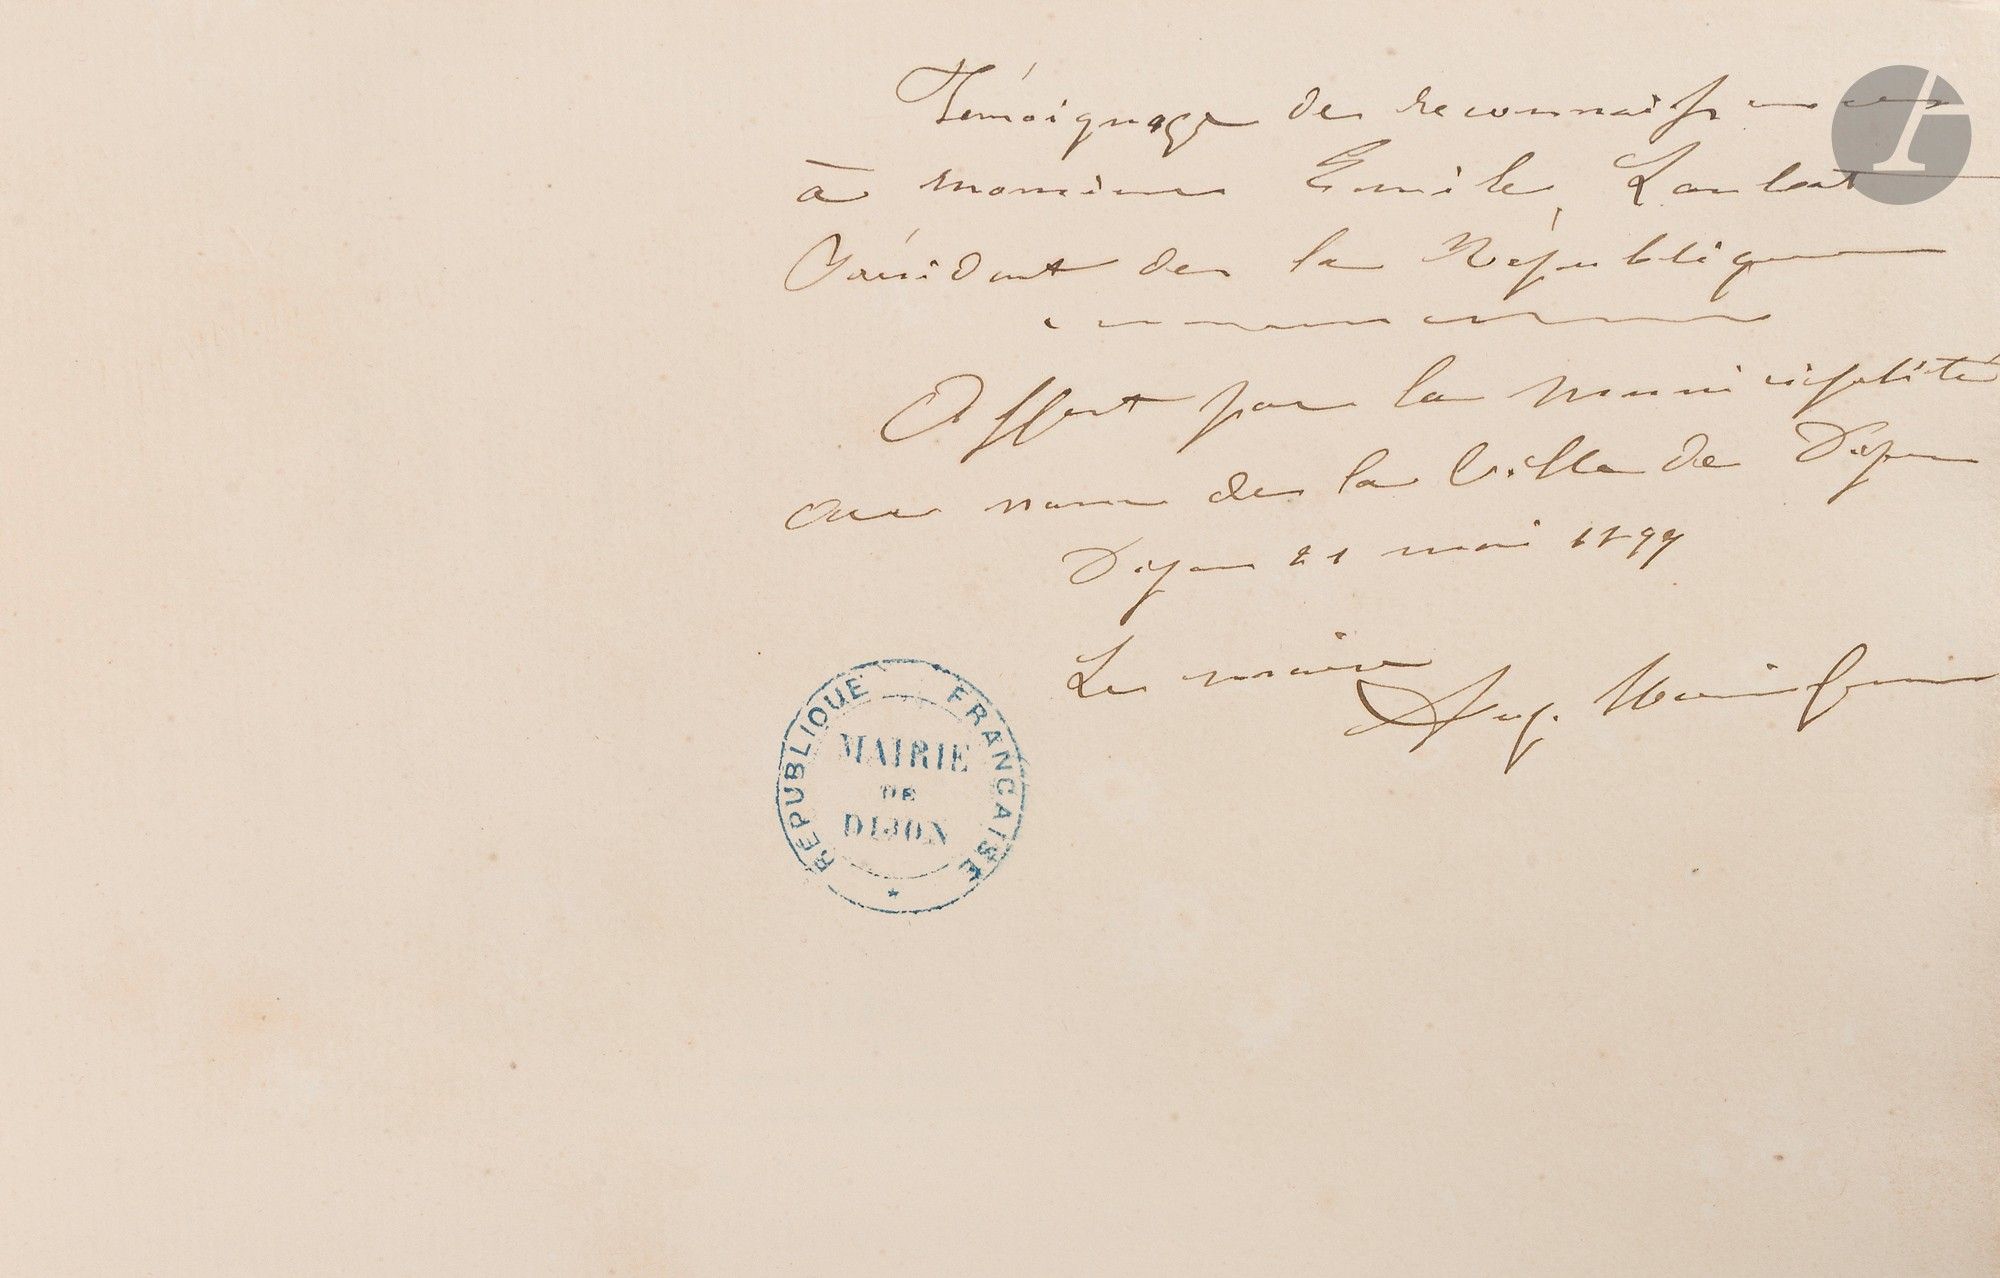 Témoignage de reconnaissance
à monsieur Emile Loubet
Président de la République
Offert par la municipalité
au nom de la Ville de Dijon
Dijon 21 mai 1899
Le maire
RÉPUBLIQUE FRANÇAISE
MAIRIE
DE
DIJON